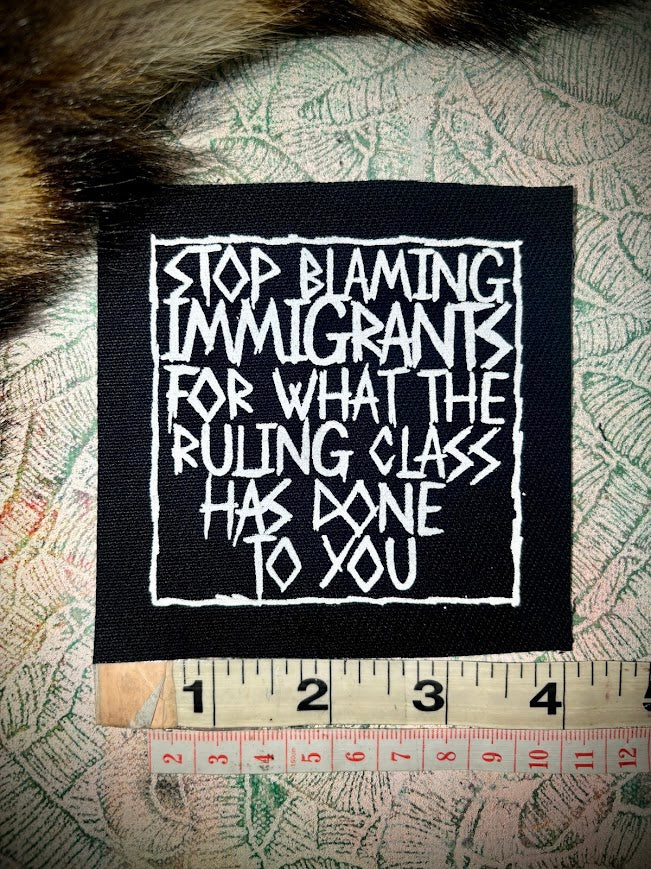 STOP BLAMING
IMMIGRANTS
FOR WHAT THE
RULING CLASS
HAS DONE
TO YOU
1 2 3 4
2 3 4 5 6 7 8 9 10 11 12